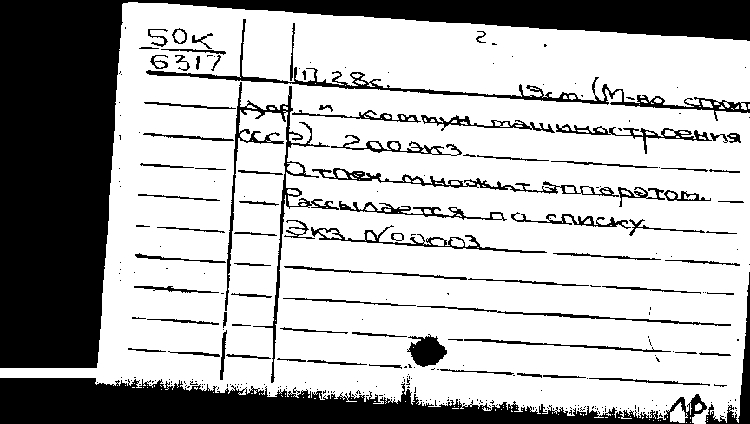 2.
50К
6317
1П, 28с. 19см. (М-во строит
дор. и коммун. машиностроения
СССР). 200экз
Отпеч. множит. аппаратом.
Рассылается по списку.
Экз. №00003